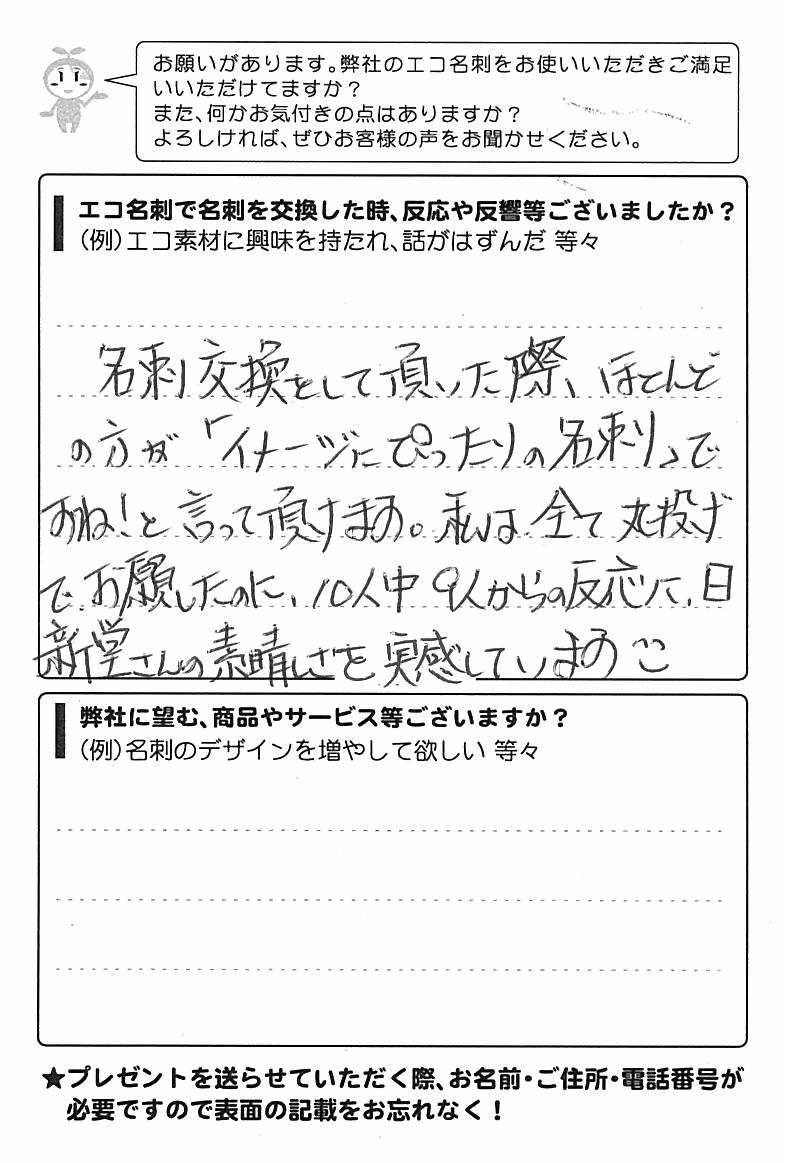 お願いがあります。弊社のエコ名刺をお使いいただきご満足
いいただけてますか？
また、何かお気付きの点はありますか？
よろしければ、ぜひお客様の声をお聞かせください。
エコ名刺で名刺を交換した時、反応や反響等ございましたか？
（例）エコ素材に興味を持たれ、話がはずんだ 等々
名刺交換をして頂いた際、ほとんど
の方が「イメージにぴったりの名刺」で
すね！と言って頂けます。私は全て丸投げ
でお願したのに、10人中9人からの反応に、日
新堂さんの素晴しさを実感しています
弊社に望む、商品やサービス等ございますか？
（例）名刺のデザインを増やして欲しい 等々
★プレゼントを送らせていただく際、お名前・ご住所・電話番号が
必要ですので表面の記載をお忘れなく！